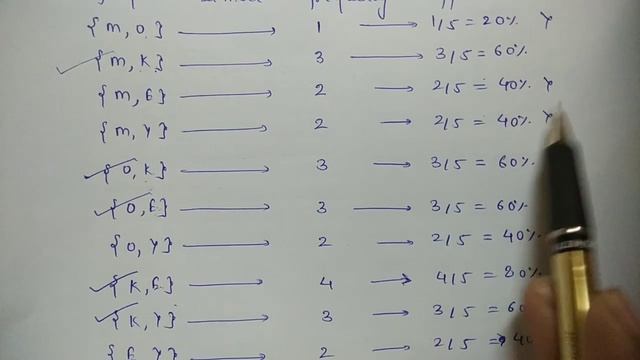 {m, O} → 1 → 1/5 = 20% Y
✓ {m, K} → 3 → 3/5 = 60%
{m, E} → 2 → 2/5 = 40% Y
{m, Y} → 2 → 2/5 = 40% Y
✓ {O, K} → 3 → 3/5 = 60%
✓ {O, E} → 3 → 3/5 = 60%
{O, Y} → 2 → 2/5 = 40%
✓ {K, E} → 4 → 4/5 = 80%
✓ {K, Y} → 3 → 3/5 = 60
{E, Y} → 2 → 2/5 = 40